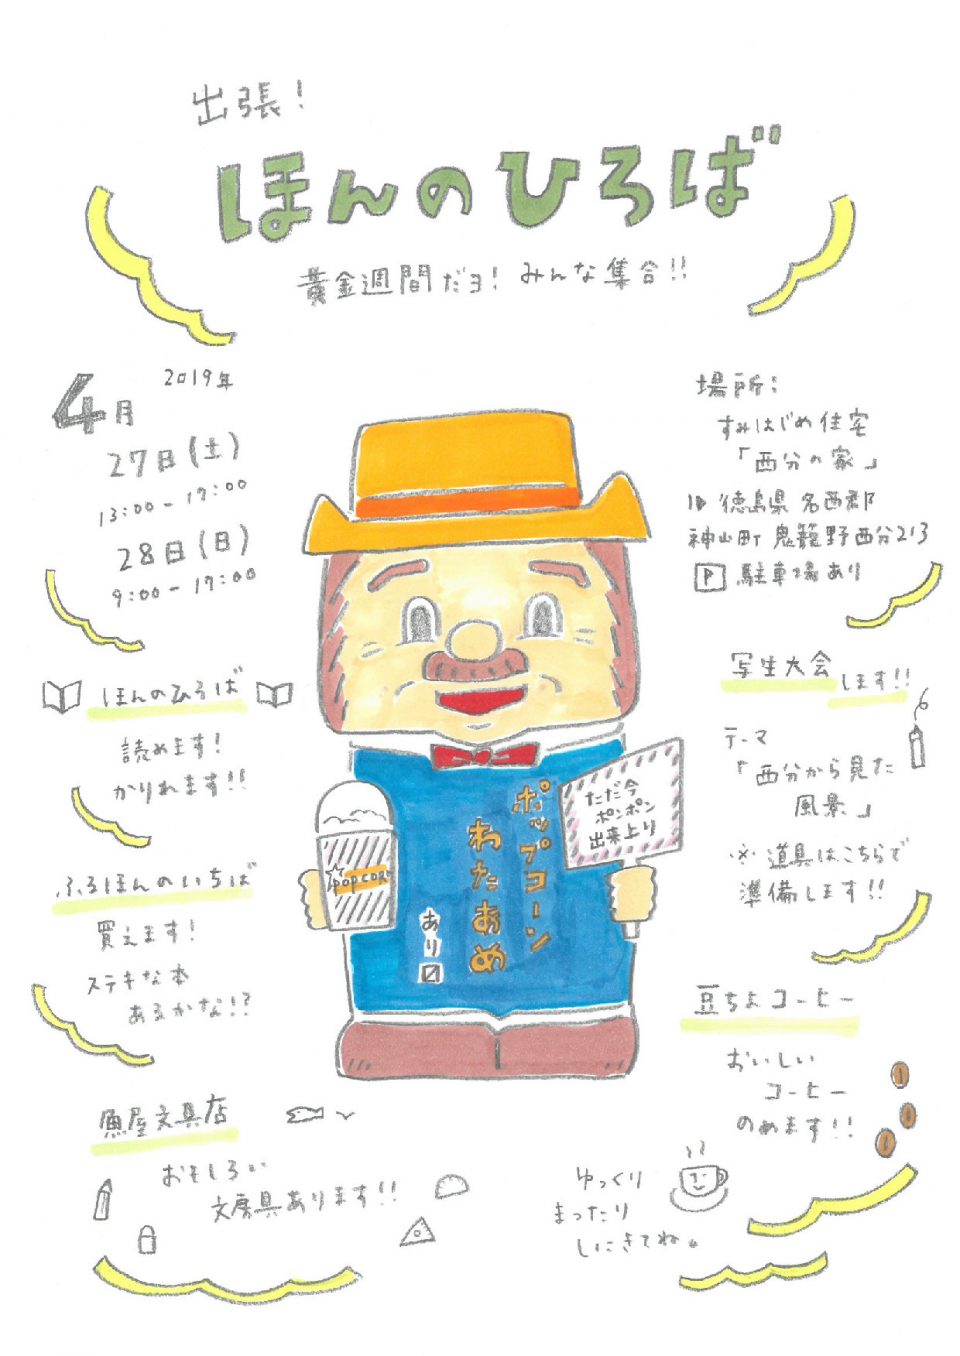 出張!
ほんのひろば
黄金週間だヨ! みんな集合!!
2019年
4月
27日(土)
13:00-17:00
28日(日)
9:00-17:00
場所:
すみはじめ住宅
「西分の家」
徳島県 名西郡
神山町 鬼籠野西分213
P 駐車場あり
ほんのひろば
読めます!
かりれます!!
ふるほんのいちば
買えます!
ステキな本
あるかな!?
写生大会 します!!
テーマ
「西分から見た
風景」
※道具はこちらで
準備します!!
ポップコーン
わたあめ
あり〼
POPCORN
ただ今
ポンポン
出来上り
豆ちよコーヒー
おいしい
コーヒー
のめます!!
魚屋文具店
おもしろい
文房具あります!!
ゆっくり
まったり
しにきてね。